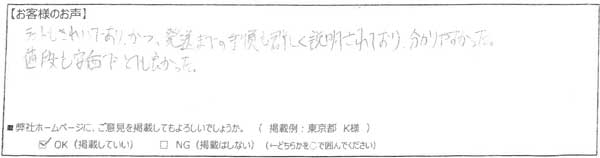 【お客様のお声】
きれいであり、かつ、発送までの手順も詳しく説明されており、分かりやすかった。
値段も安価でとても良かった。
■弊社ホームページに、ご意見を掲載してもよろしいでしょうか。 ( 掲載例：東京都 K様 )
☑ OK (掲載していい) □ NG (掲載はしない) (←どちらかを○で囲んでください)